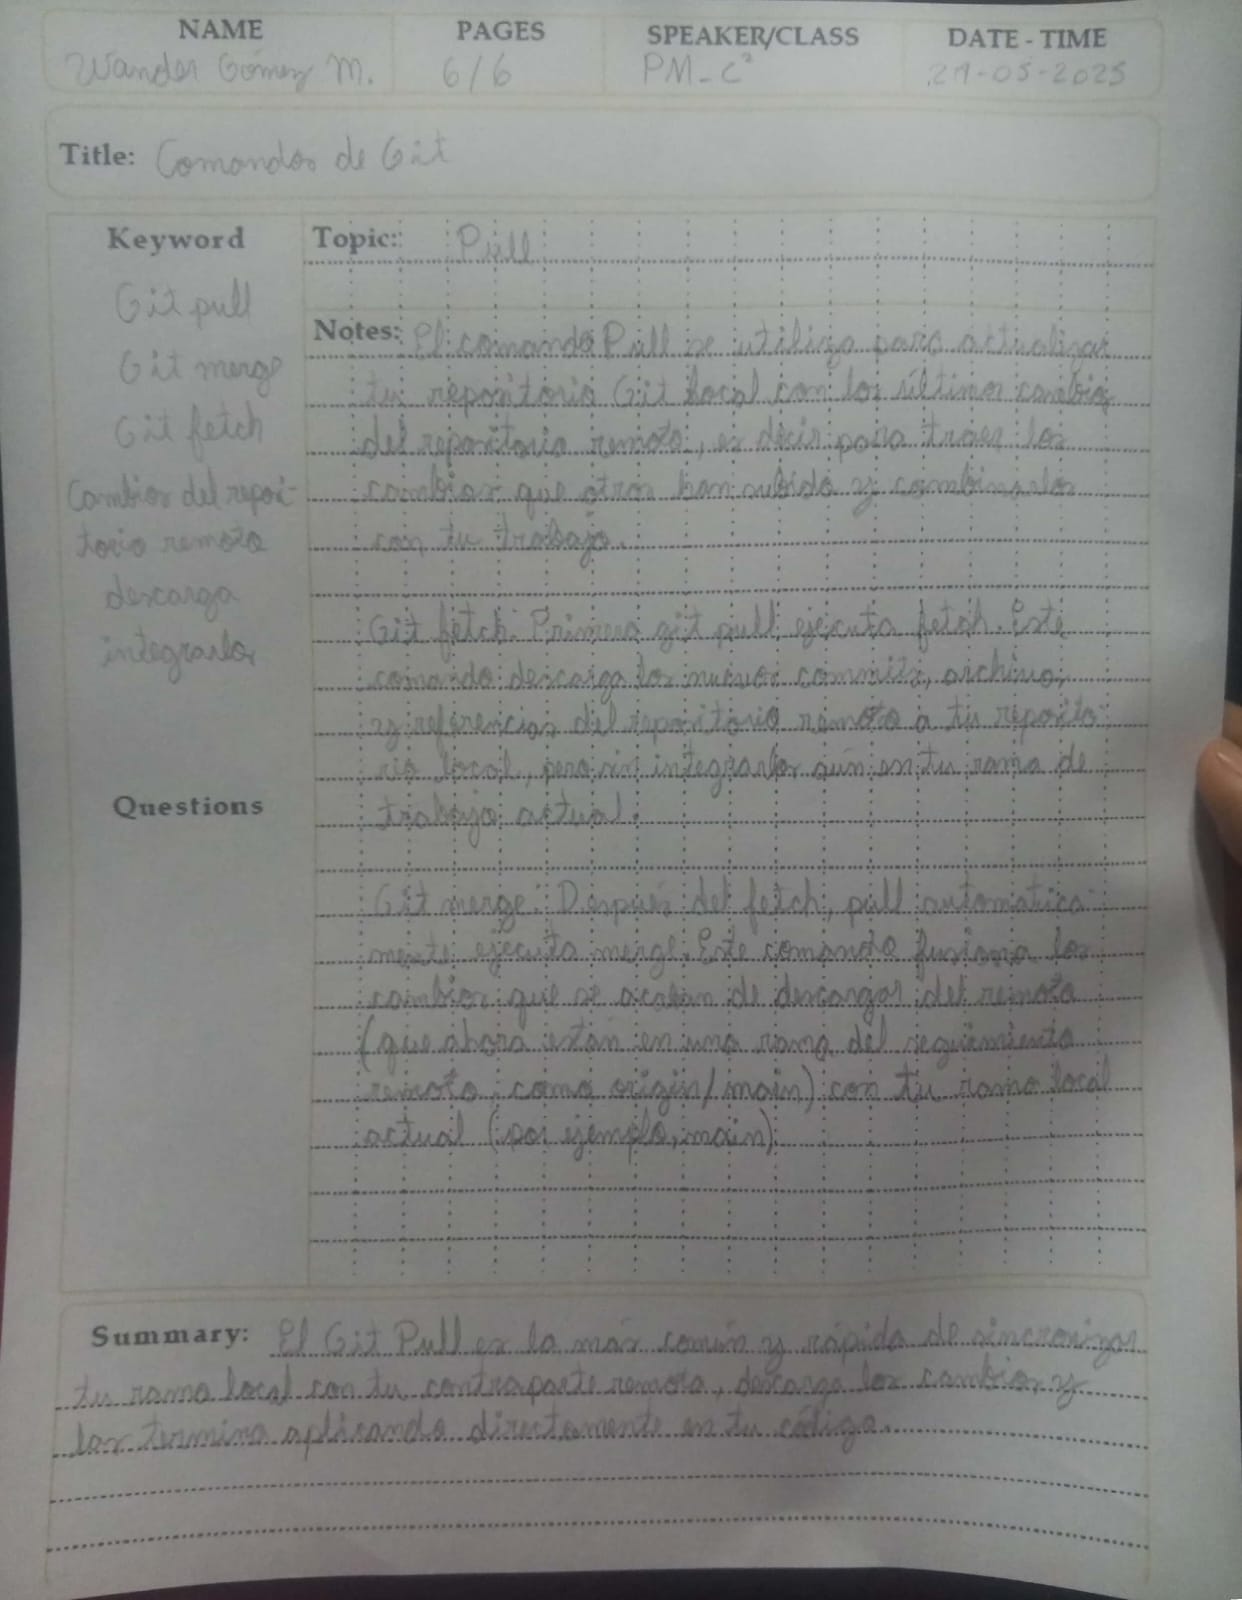 NAME PAGES SPEAKER/CLASS DATE - TIME
Wander Gómez M. 6/6 PM-C² 29-05-2025
Title: Comandos de Git
Keyword
Git pull
Git merge
Git fetch
Cambios del reposi-
torio remoto
descarga
integrarlos
Questions
Topic: Pull
Notes: El comando Pull se utiliza para actualizar
tu repositorio Git local con los últimos cambios
del repositorio remoto, es decir para traer los
cambios que otros han subido y combinarlos
con tu trabajo.
Git fetch: Primero git pull ejecuta fetch. Este
comando descarga los nuevos commits, archivos,
y referencias del repositorio remoto a tu reposito-
rio local, pero sin integrarlos aún en tu rama de
trabajo actual.
Git merge: Después del fetch, pull automatica-
mente ejecuta merge. Este comando fusiona los
cambios que se acaban de descargar del remoto
(que ahora están en una rama del seguimiento
remoto como origin/main) con tu rama local
actual (por ejemplo, main).
Summary: El Git Pull es la más común y rápida de sincronizar
tu rama local con tu contraparte remota, descarga los cambios y
los termina aplicando directamente en tu código.